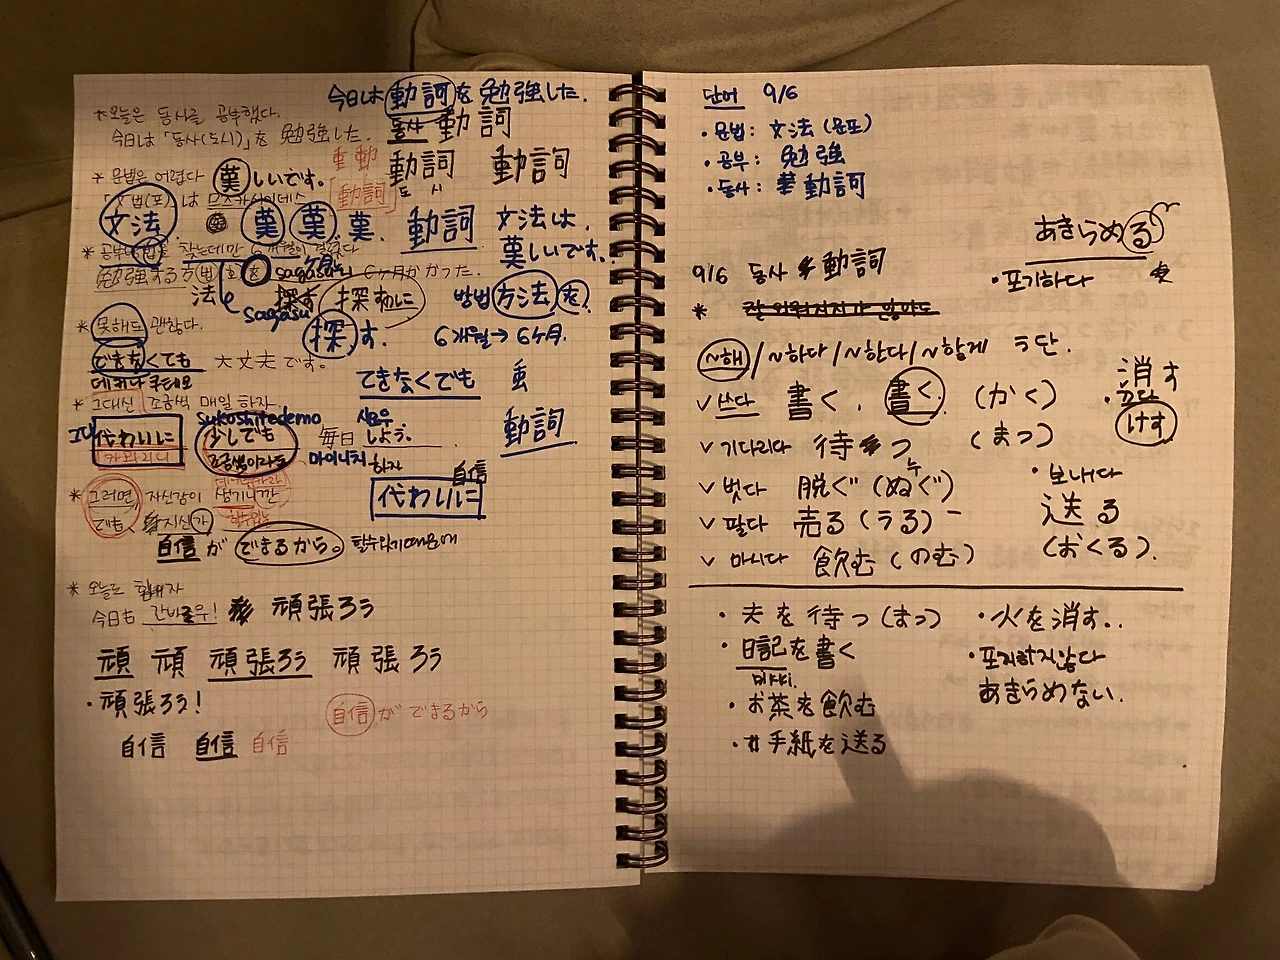 今日は動詞を勉強した.
*오늘은 동사를 공부했다.
今日は「동사(도시)」を 勉強した.
동사 動詞
重 動
動詞 動詞
* 문법은 어렵다 しいです。
[動詞]
도 시
「문법(포)」は 므즈카시이데스
文法
動詞 文法は、
しいです..
* 공부 방법을 찾는데만 6개월이 걸렸다
勉強する方법(호)を sagasu 6ヶ月がかかった.
法 探す 探すのに
sagasu
探す.
방법 方法を.
6개월→6ケ月.
* 못해도 괜찮다.
できなくても 大丈夫です。
데키나쿠테모
できなくても
* 그대신 조금씩 매일 하자
sukoshitedemo
代わりに 少しでも 毎日 しよう.
카와리니 조금씩이라도 마이니치 하자
動詞
自信
代わりに
* 그러면, 자신감이 생기니간
でも、 지신가
自信 が できるから。 할수있기때문에
* 오늘도 힘내자
今日も 간바로우! 頑張ろう
頑 頑 頑張ろう 頑張ろう
・頑張ろう!
自信 が できるから
自信 自信 自信
단어 9/6
・문법: 文法 (문포)
・공부: 勉強
・동사: 動詞
あきらめる
・포기하다
9/6 동사 動詞
*
~해/~하다/~한다/~함께 う단.
✓ 쓰다 書く. 書く (かく)
✓ 기다리다 待つ (まつ)
✓ 벗다 脱ぐ (ぬぐ)
누
✓ 팔다 売る (うる)
✓ 마시다 飲む (のむ)
消す
・끄다
けす
・보내다
送る
(おくる).
・夫を待つ (まつ)
・日記を書く
nikki.
・お茶を飲む
・手紙を送る
・火を消す..
・포기하지않다
あきらめない.